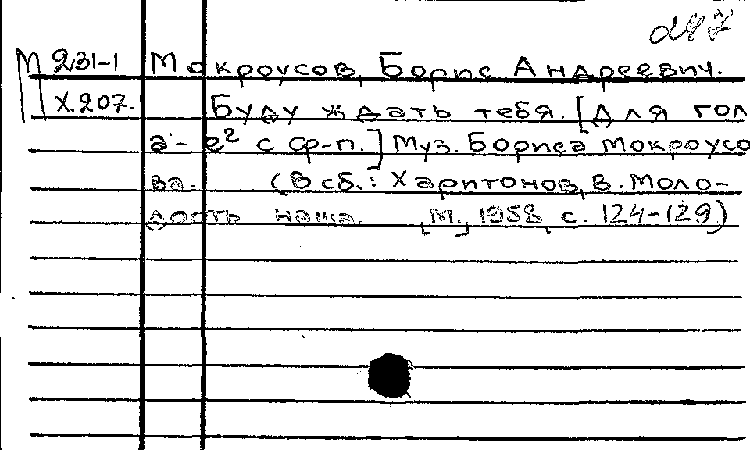 287
М 231-1 Мокроусов, Борис Андреевич.
Х.207. Буду ждать тебя. [Для гол
а-е² с ф-п.] Муз. Бориса Мокроусо
ва. (В сб.: Харитонов, В. Моло-
дость наша. [М.], 1958, с. 124-129)